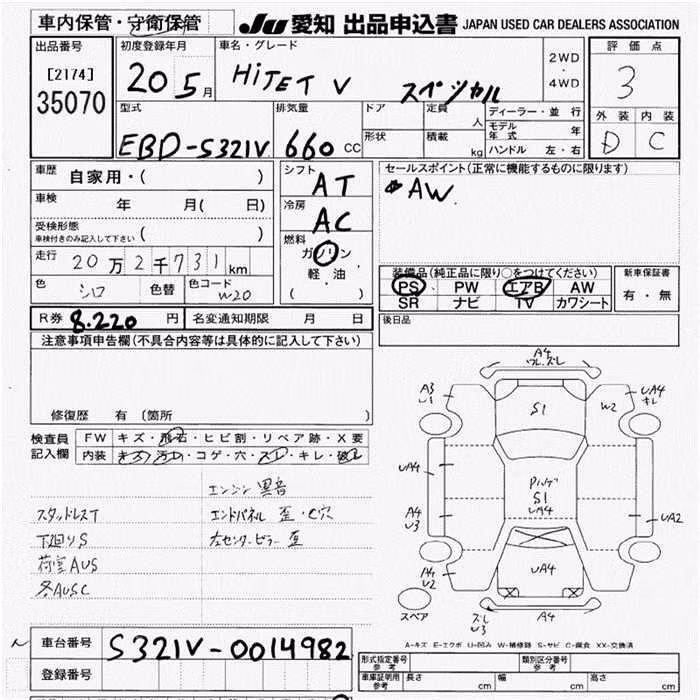 車内保管・守衛保管
JU 愛知 出品申込書 JAPAN USED CAR DEALERS ASSOCIATION
出品番号
[2174]
35070
初度登録年月
20 5月
車名・グレード
HiJET V スペシャル
2WD
・
4WD
評価点
3
外装 内装
D C
型式
EBD-S321V
排気量
660 CC
ドア
形状
定員 人
積載 kg
ディーラー・並行
モデル年式 年
ハンドル 左・右
車歴 自家用・( )
車検 年 月( 日)
受検形態
車検付きのみ記入して下さい ( )
走行 20万2千731km
色 シロ 色替 色コード W20
シフト
AT
冷房
AC
燃料
ガソリン
軽・油
( )
セールスポイント(正常に機能するものに限ります)
AW.
装備品(純正品に限り○をつけてください)
PS PW エアB AW
SR ナビ TV カワシート
新車保証書
有・無
R券 8.220 円 名変通知期限 月 日
後日品
注意事項申告欄(不具合内容等は具体的に記入して下さい)
修復歴 有〔箇所 〕
検査員記入欄
FW キズ・飛石・ヒビ割・リペア跡・X要
内装 キズ・汚れ・コゲ・穴・スレ・キレ・破レ
エンジン異音
スタッドレスT エンドパネル 歪・穴
下廻りS 左センターピラー 歪
荷室AUS
A4
ワレ.ズレ
A3
U1
UA4
キレ
S1
W2
UA4
S1
UA4
A4
U3
UA2
UA4
A4
U2
スペア
ズレ
U3
A4
A-キズ E-エクボ U-凹み W-補修跡 S-サビ C-腐食 XX-交換済
車台番号 S321V-0014982
登録番号
形式指定番号 参考
類別区分番号 参考
車庫証明用 参考 長さ cm 幅 cm 高さ cm